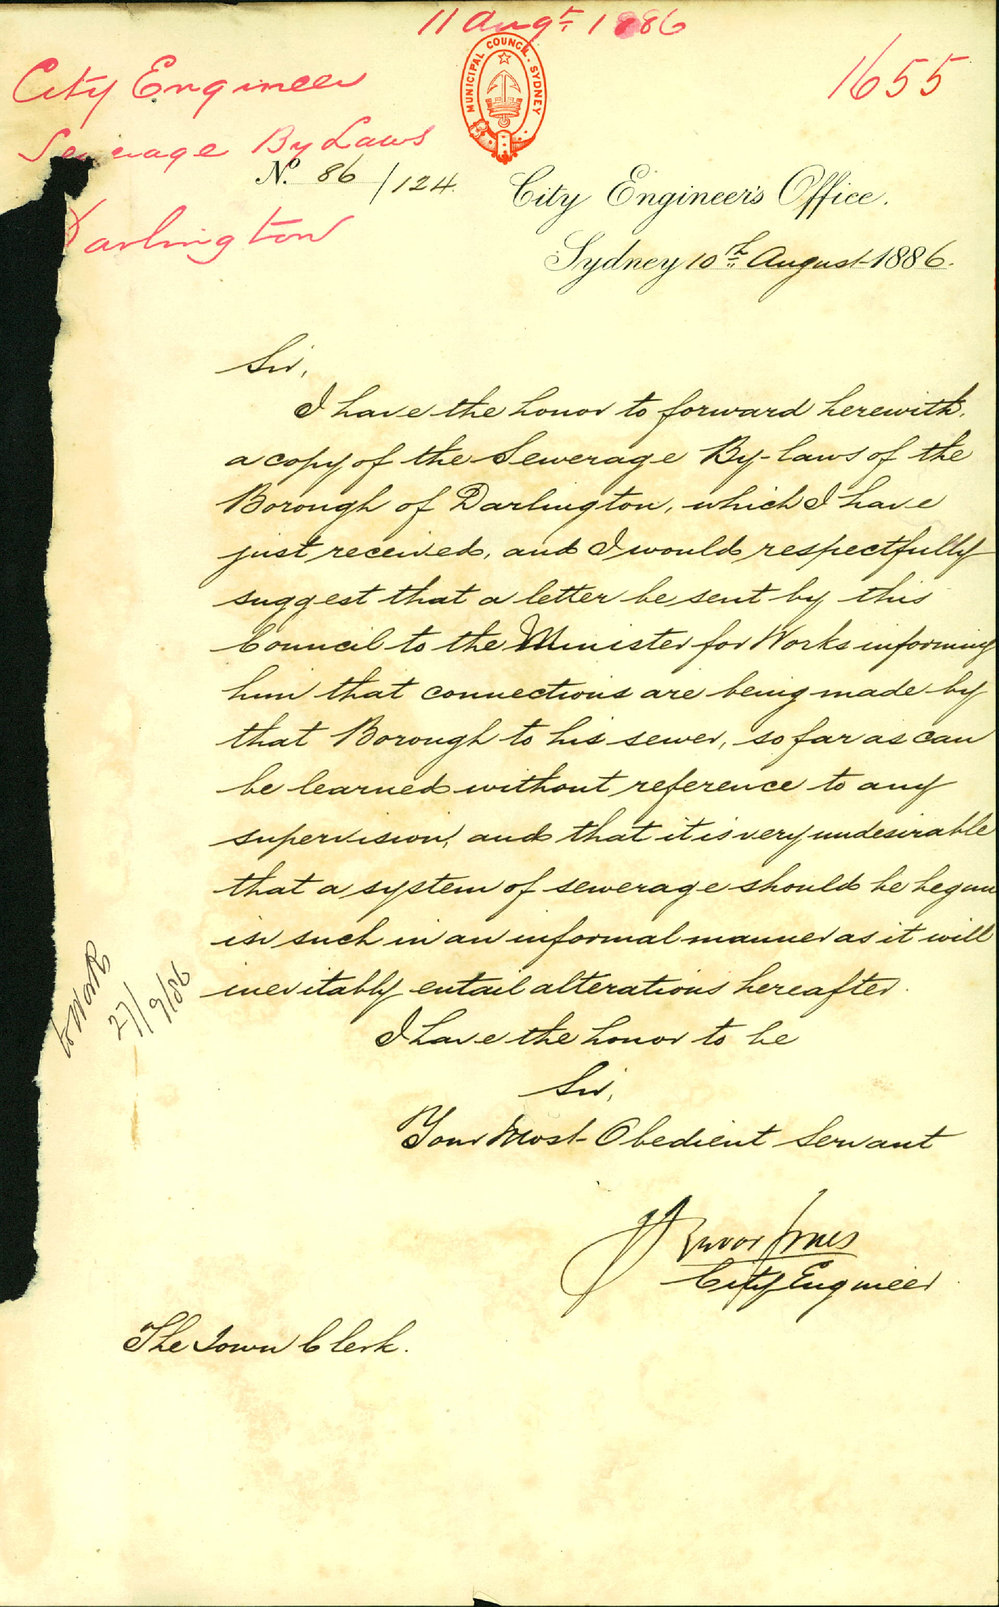 11 Augt. 1886
City Engineer
1655
MUNICIPAL COUNCIL. SYDNEY
Sewerage By Laws
No. 86/124.
City Engineer's Office.
Darlington
Sydney 10th August 1886.
Sir,
I have the honor to forward herewith,
a copy of the Sewerage By-laws of the
Borough of Darlington, which I have
just received, and I would respectfully
suggest that a letter be sent by this
Council to the Minister for Works informing
him that connections are being made by
that Borough to his sewer, so far as can
be learned without reference to any
supervision, and that it is very undesirable
that a system of sewerage should be begun
in such in an informal manner as it will
inevitably entail alterations hereafter.
27/9/86
I have the honor to be
Sir,
Your Most Obedient Servant
Trevor Jones
City Engineer
The Town Clerk.